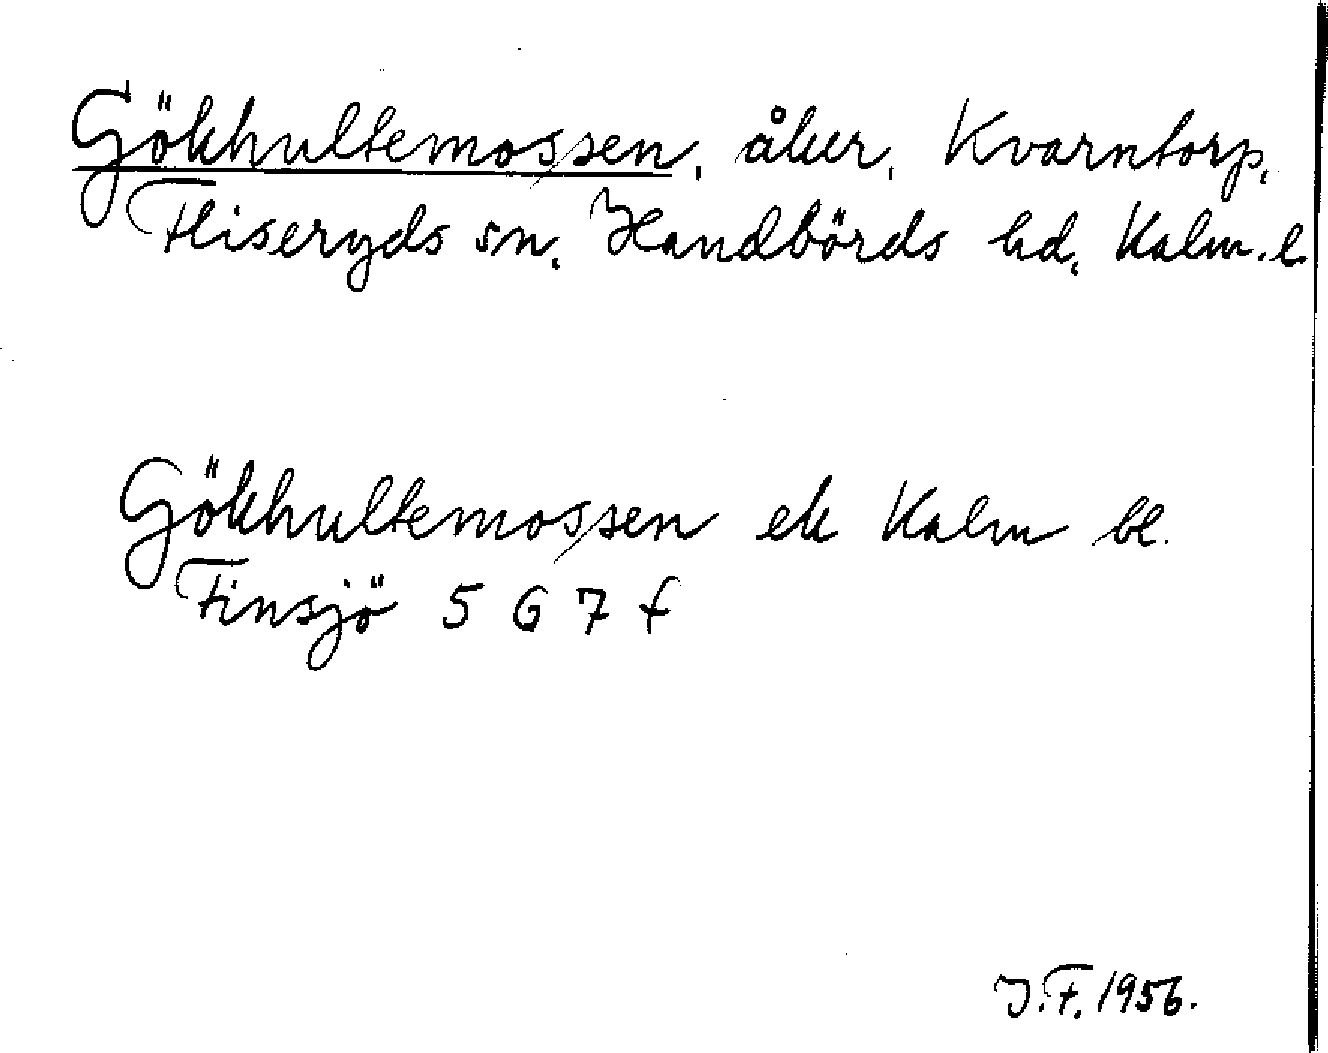 Gökhultemossen, åker, Kvarntorp,
Fliseryds sn, Handbörds hd, Kalm. l
Gökhultemossen ek Kalm bl.
Finsjö 5 G 7 f
J.F. 1956.